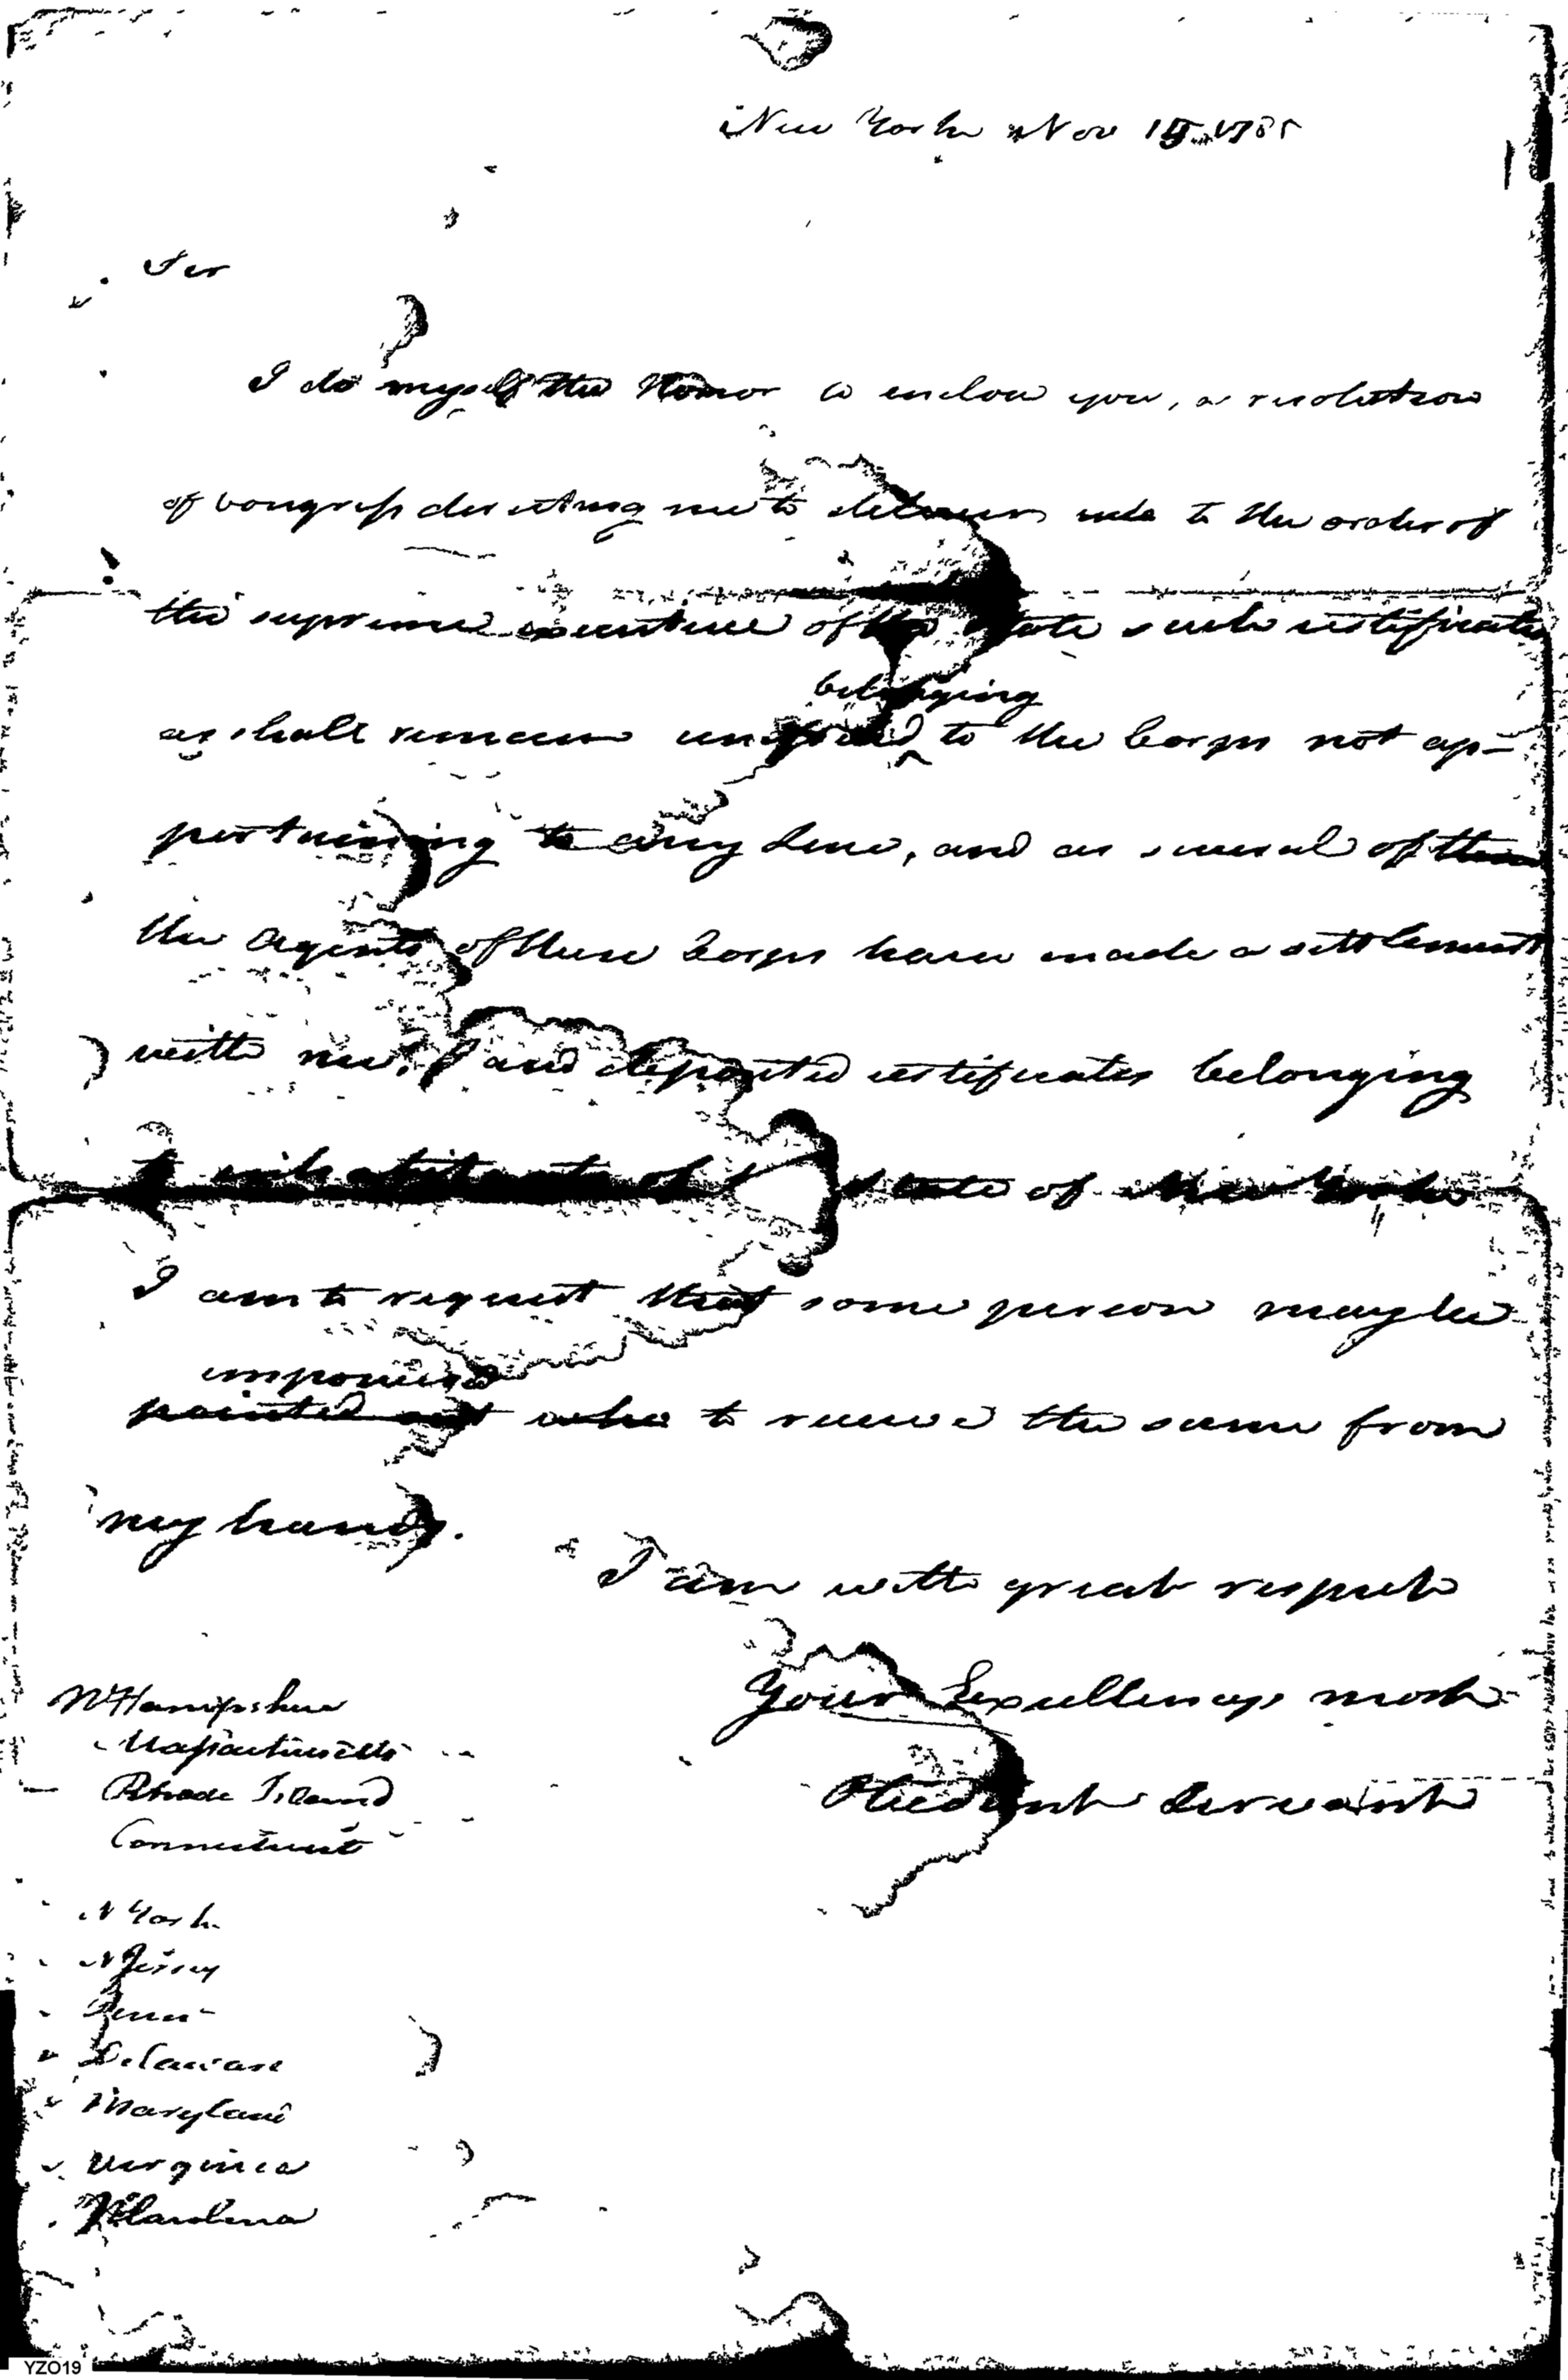 New York Nov 15 1785
Sir
I do myself the Honor to enclose you, a resolution
of Congress directing me to deliver into to the order of
the supreme executive of the state such certificates
belonging
as shall remain to the Corps not ap-
pertaining to any line, and as several of them
the Agents of these Corps have made a settlement
with me, and deposited certificates belonging
to inhabitants of state of New York
I am to request that some person may be
impowered
pointed out who to receive the same from
my hands.
I am with great respect
Your Excellencys most
Obedient Servant
N Hampshire
Massachusetts
Rhode Island
Connecticut
N York
N Jersey
Penn
Delaware
Maryland
Virginia
N Carolina
YZO19